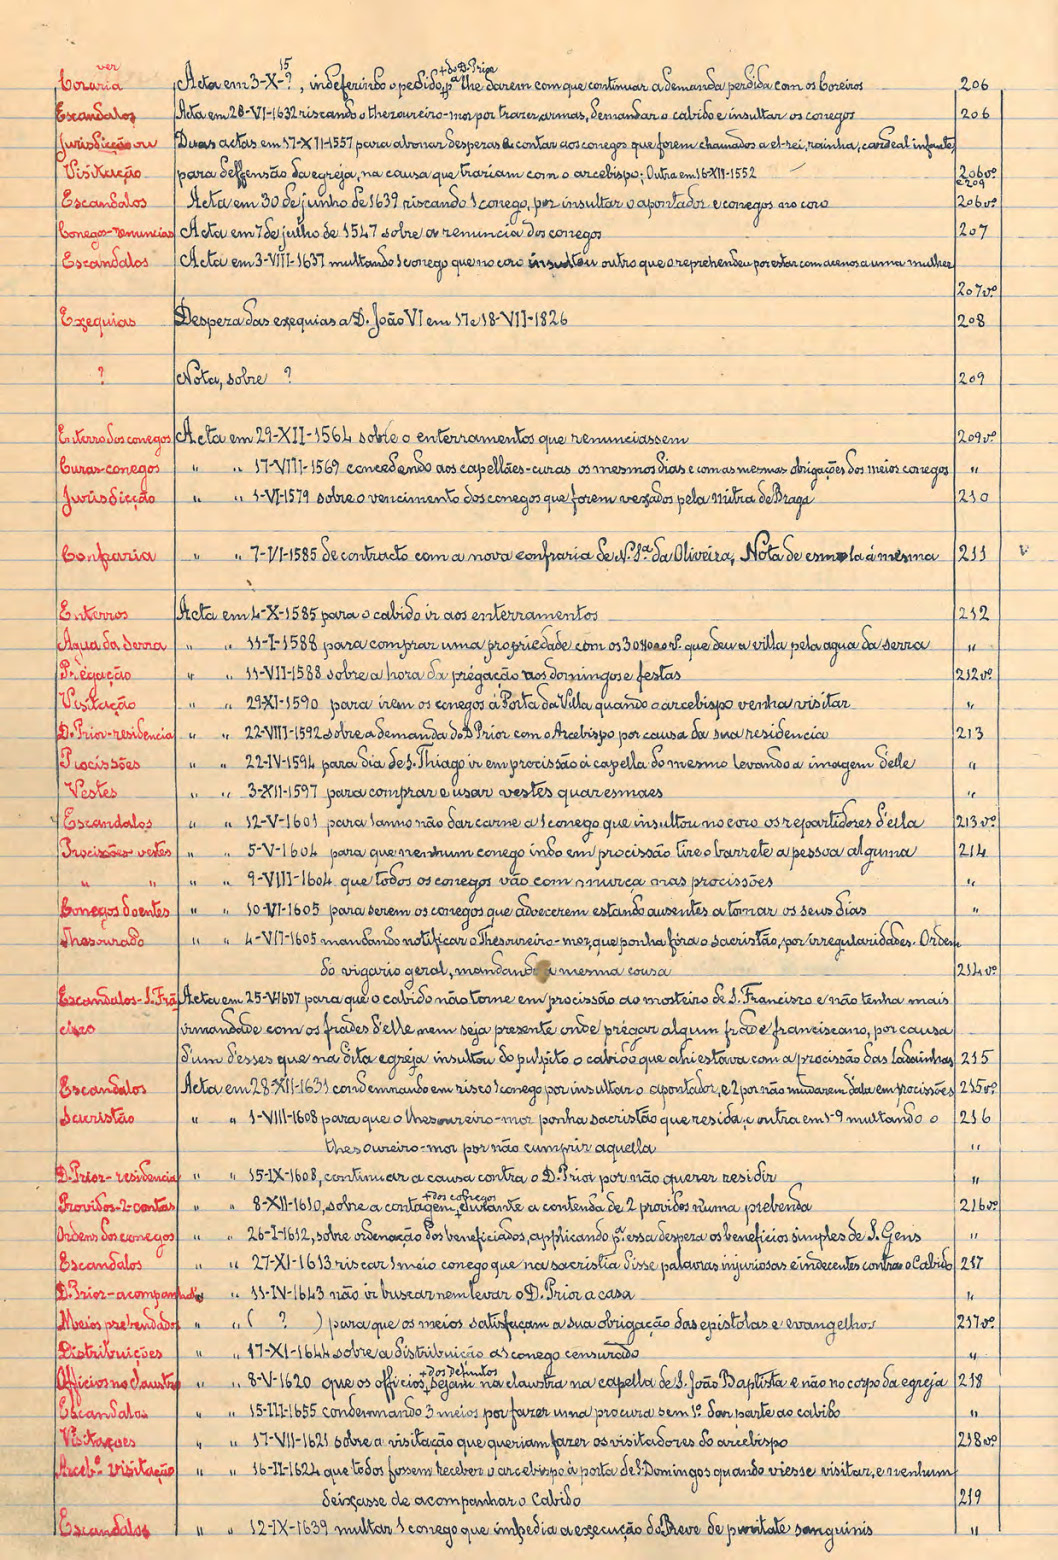 ver
Coraria Acta em 3-X-15?, indeferindo o pedido, +do D. Prior pª lhe darem com que continuar a demanda perdida com os Coreiros 206
Escandalos Acta em 28-VI-1632 riscando o thezoureiro-mor por trazer armas, demandar o cabido e insultar os conegos 206
Jurisdicção ou Duas actas em 17-XII-1557 para abonar despezas e contar aos conegos que forem chamados a el-rei, rainha, cardeal infante
Visitação para deffensão da egreja, na causa que traziam com o arcebispo; Outra em 16-XII-1552 206vº e 209
Escandalos Acta em 30 de junho de 1639 riscando 1 conego, por insultar o apontador e conegos no coro 206vº
Conegos-renuncias Acta em 7 de julho de 1547 sobre as renuncia dos conegos 207
Escandalos Acta em 3-VIII-1637 multando 1 conego que no coro insultou outro que o reprehendeu por estar com acenos a uma mulher
207vº
Exequias Despeza das exequias a D. João VI em 17 e 18-VII-1826 208
? Nota, sobre ? 209
Enterro dos conegos Acta em 29-XII-1564 sobre o enterramentos que renunciassem 209vº
Curas-conegos " " 17-VIII-1569 concedendo aos capellães-curas os mesmos dias e com as mesmas obrigações dos meios conegos "
Jurisdicção " " 1-VI-1579 sobre o vencimento dos conegos que forem vexados pela mitra de Braga 210
Confraria " " 7-VI-1585 de contracto com a nova confraria de N. Sª. da Oliveira, Nota de esmola á mesma 211 v
Enterros Acta em 4-X-1585 para o cabido ir aos enterramentos 212
Agua da Serra " " 11-I-1588 para comprar uma propriedade com os que deu a villa pela agua da serra "
Prégação " " 11-VII-1588 sobre a hora da prégação aos domingos e festas 212vº
Visitação " " 29-XI-1590 para irem os conegos á Porta da Villa quando o arcebispo venha visitar "
D. Prior-residencia " " 22-VIII-1592 sobre a demanda do D Prior com o Arcebispo por causa da sua residencia 213
Procissões " " 22-IV-1594 para dia de S. Thiago ir em procissão á capella do mesmo levando a imagem d'elle "
Vestes " " 3-XII-1597 para comprar e usar vestes quaresmaes "
Escandalos " " 12-V-1601 para 1 anno não dar carne a 1 conego que insultou no coro os repartidores d'ella 213vº
Procissões-vestes " " 5-V-1604 para que nenhum conego indo em procissão tire o barrete a pessoa alguma 214
" " " " 9-VIII-1604 que todos os conegos vão com murça nas procissões "
Conegos doentes " " 10-VI-1605 para serem os conegos que adoecerem estando ausentes a tomar os seus dias "
Thesourado " " 4-VII-1605 mandando notificar o Thesoureiro-mor, que ponha fóra o sacristão, por irregularidades. Ordem
do vigario geral, mandando a mesma cousa 214vº
Escandalos-S. Fran Acta em 25-V-1607 para que o cabido não torne em procissão ao mosteiro de S. Francisco e não tenha mais
cisco irmandade com os frades d'elle nem seja presente onde prégar algum frade franciscano, por causa
d'um d'esses que na dita egreja insultou do pulpito o cabido que ahi estava com a procissão das Ladainhas 215
Escandalos Acta em 28-XII-1631 condemnando em risco 1 conego por insultar o apontador, e 2 por não mudarem d'ala em procissões 215vº
Sacristão " " 1-VIII-1608 para que o thesoureiro-mor ponha sacristão que resida; e outra em 1-9 multando o 216
thesoureiro-mor por não cumprir aquella "
D. Prior-residencia " " 15-IX-1608, continuar a causa contra o D. Prior por não querer residir "
Providos-2-contas " " 8-XII-1610, sobre a contagem +dos conegos durante a contenda de 2 providos numa prebenda 216vº
Ordens dos conegos " " 26-I-1612, sobre ordenação dos beneficiados, applicando pª. essa despeza os beneficios simples de S. Gens "
Escandalos " " 27-XI-1613 riscar 1 meio conego que na sacristia disse palavras injuriosas e indecentes contra o Cabido 217
D. Prior-acompanhal-o " 11-IV-1643 não ir buscar nem levar o D. Prior a casa "
Meios prebendados " " ( ? ) para que os meios satisfaçam a sua obrigação das epistolas e evangelhos "217vº
Distribuições " " 17-XI-1644 sobre a distribuição ao conego censurado "
Officios no claustro " " 8-V-1620 que os officios +dos defuntos sejam na claustra na capella de S. João Baptista e não no corpo da egreja 218
Escandalos " " 15-III-1655 condemnando 3 meios por fazer uma procura sem 1º. dar parte ao cabido "
Visitações " " 17-VII-1621 sobre a visitação que queriam fazer os visitadores do arcebispo 218vº
Arcebº. visitação " " 16-II-1624 que todos fossem receber o arcebispo á porta de S. Domingos quando viesse visitar, e nenhum
deixasse de acompanhar o Cabido 219
Escandalos " " 12-IX-1639 multar 1 conego que impedia a execução do Breve de puritate sanguinis "